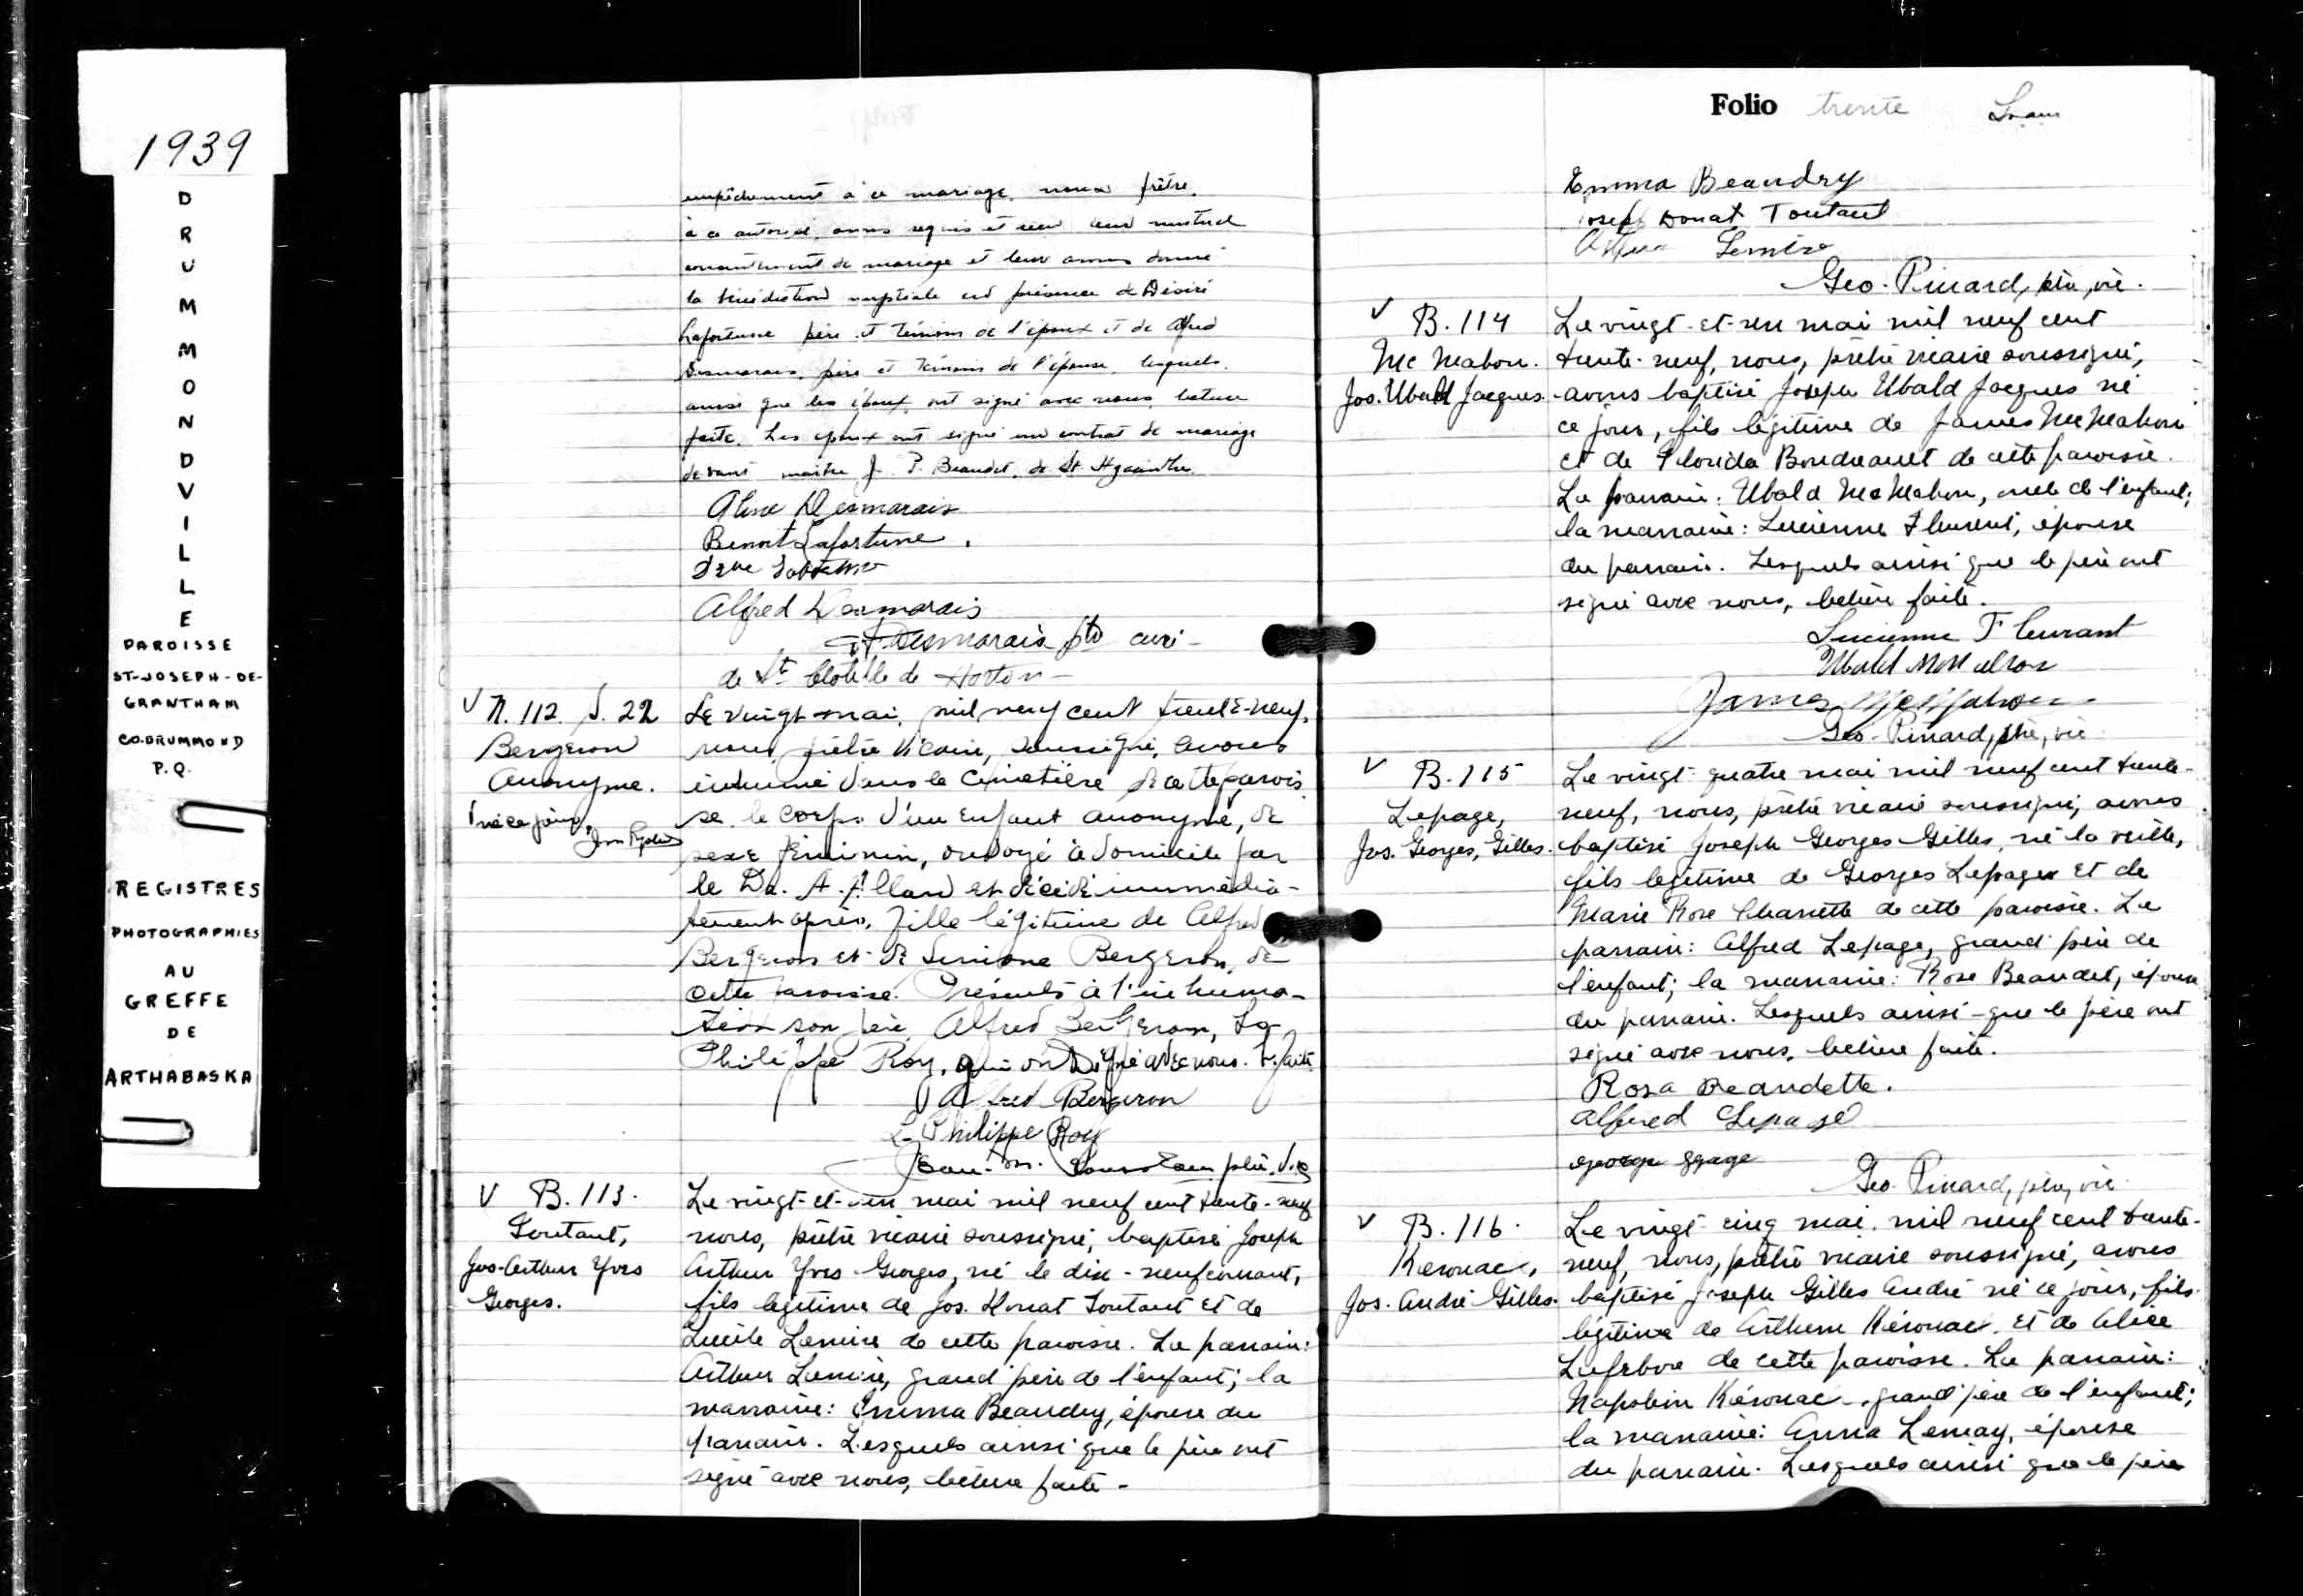 1939
DRUMMONDVILLE
PAROISSE
ST-JOSEPH-DE-
GRANTHAM
CO. DRUMMOND
P.Q.
REGISTRES
PHOTOGRAPHIES
AU
GREFFE
DE
ARTHABASKA
empêchement à ce mariage, nous prêtre
à ce autorisé, avons requis et reçu leur mutuel
consentement de mariage et leur avons donné
la bénédiction nuptiale en présence de Désiré
Lafortune père et témoin de l'époux et de Alfred
Desmarais, père et témoin de l'épouse, lesquels
ainsi que les époux, ont signé avec nous, lecture
faite. Les époux ont signé un contrat de mariage
devant maître J. P. Beaudet, de St Hyacinthe.
Aline Desmarais
Benoit Lafortune.
Alfred Desmarais
Desmarais ptre curé
de Ste Clotilde de Horton
V N. 112. S. 22
Bergeron
Anonyme.
né ce jour,
Le vingt mai, mil neuf cent trente-neuf,
nous, prêtre vicaire, soussigné, avons
inhumé dans le cimetière de cette parois
se le corps d'un enfant anonyme, de
sexe féminin, ondoyé à domicile par
le Dr. A. Allard et décédé immédia-
tement après, fille légitime de Alfred
Bergeron et de Simone Bergeron, de
cette paroisse. Présents à l'inhuma-
tion son père Alfred Bergeron,
Philippe Roy, qui ont signé avec nous. L. faite
Alfred Bergeron
L-Philippe Roy
V B. 113.
Toutant,
Jos-Arthur Yves
Georges.
Le vingt-et-un mai mil neuf cent trente-neuf
nous, prêtre vicaire soussigné, baptisé Joseph
Arthur Yves Georges, né le dix-neuf courant,
fils légitime de Jos. Donat Toutant et de
Lucile Lemire de cette paroisse. Le parrain:
Arthur Lemire, grand'père de l'enfant; la
marraine: Emma Beaudry, épouse du
parrain. Lesquels ainsi que le père ont
signé avec nous, lecture faite -
Folio trente
Emma Beaudry
Joseph Donat Toutant
Arthur Lemire
Geo. Pinard, ptre, vic.
V B. 114
Mc Mahon.
Jos. Ubald Jacques.
Le vingt-et-un mai mil neuf cent
trente-neuf, nous, prêtre vicaire soussigné,
avons baptisé Joseph Ubald Jacques né
ce jour, fils légitime de James McMahon
et de Florida Boudreault de cette paroisse.
Le parrain: Ubald McMahon, oncle de l'enfant;
la marraine: Lucienne Fleurent, épouse
du parrain. Lesquels ainsi que le père ont
signé avec nous, lecture faite.
Lucienne Fleurant
Ubald McMahon
James McMahon
Geo. Pinard, ptre, vic
V B. 115
Lepage,
Jos. Georges, Gilles.
Le vingt-quatre mai mil neuf cent trente-
neuf, nous, prêtre vicaire soussigné, avons
baptisé Joseph Georges Gilles, né la veille,
fils légitime de Georges Lepage et de
Marie Rose Charette de cette paroisse. Le
parrain: Alfred Lepage, grand'père de
l'enfant; la marraine: Rose Beaudet, épouse
du parrain. Lesquels ainsi que le père ont
signé avec nous, lecture faite.
Rosa Beaudette.
Alfred Lepage
George Lepage
Geo. Pinard, ptre, vic.
V B. 116.
Kérouac,
Jos. André Gilles.
Le vingt-cinq mai, mil neuf cent trente-
neuf, nous, prêtre vicaire soussigné, avons
baptisé Joseph Gilles André né ce jour, fils
légitime de Arthur Kérouac et de Alice
Lefebvre de cette paroisse. Le parrain:
Napoléon Kérouac, grand'père de l'enfant;
la marraine: Anna Lemay, épouse
du parrain. Lesquels ainsi que le père